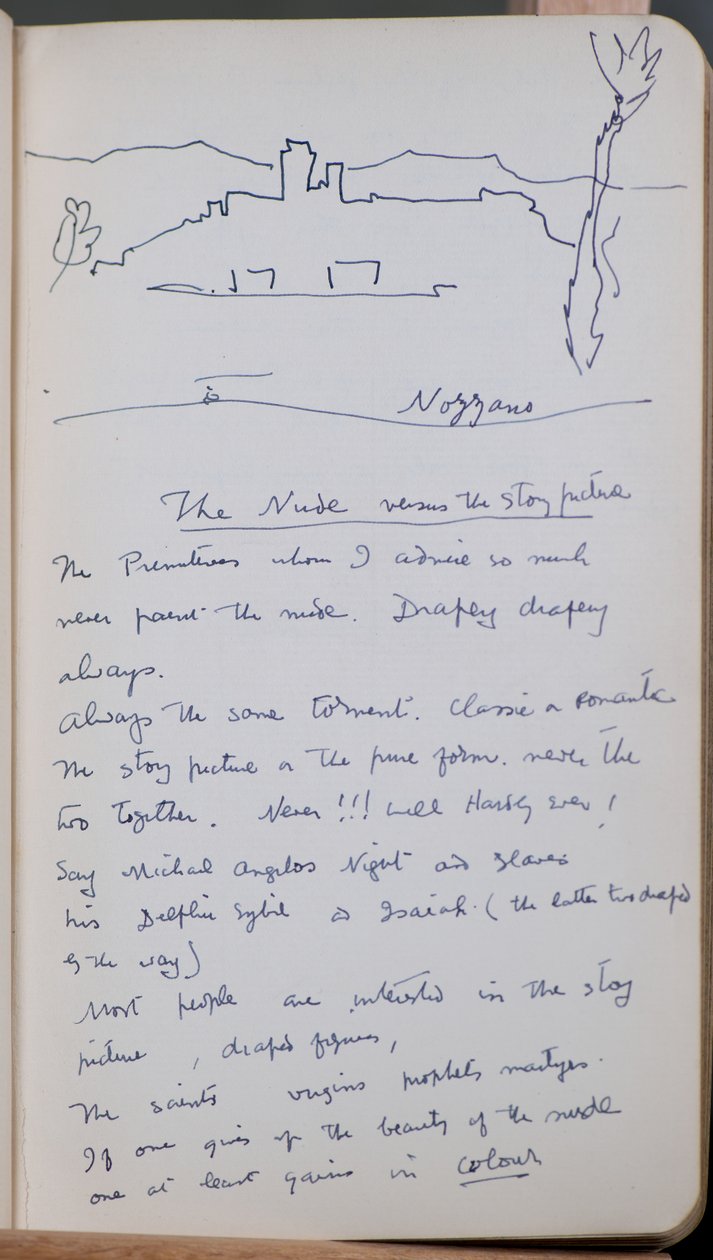 Nozzano
The Nude versus the story picture
The Primitives whom I admire so much
never paint the nude. Drapery drapery
always.
Always the same torment. Classic or romantic
The story picture or the pure form. never the
two together. Never!!! well Hardly ever!
Say Michael Angelos Night and Slaves
his Delphic Sybil or Isaiah. (the latter two draped
by the way)
Most people are interested in the story
picture, draped figures,
The saints virgins prophets martyrs.
If one gives up the beauty of the nude
one at least gains in colour